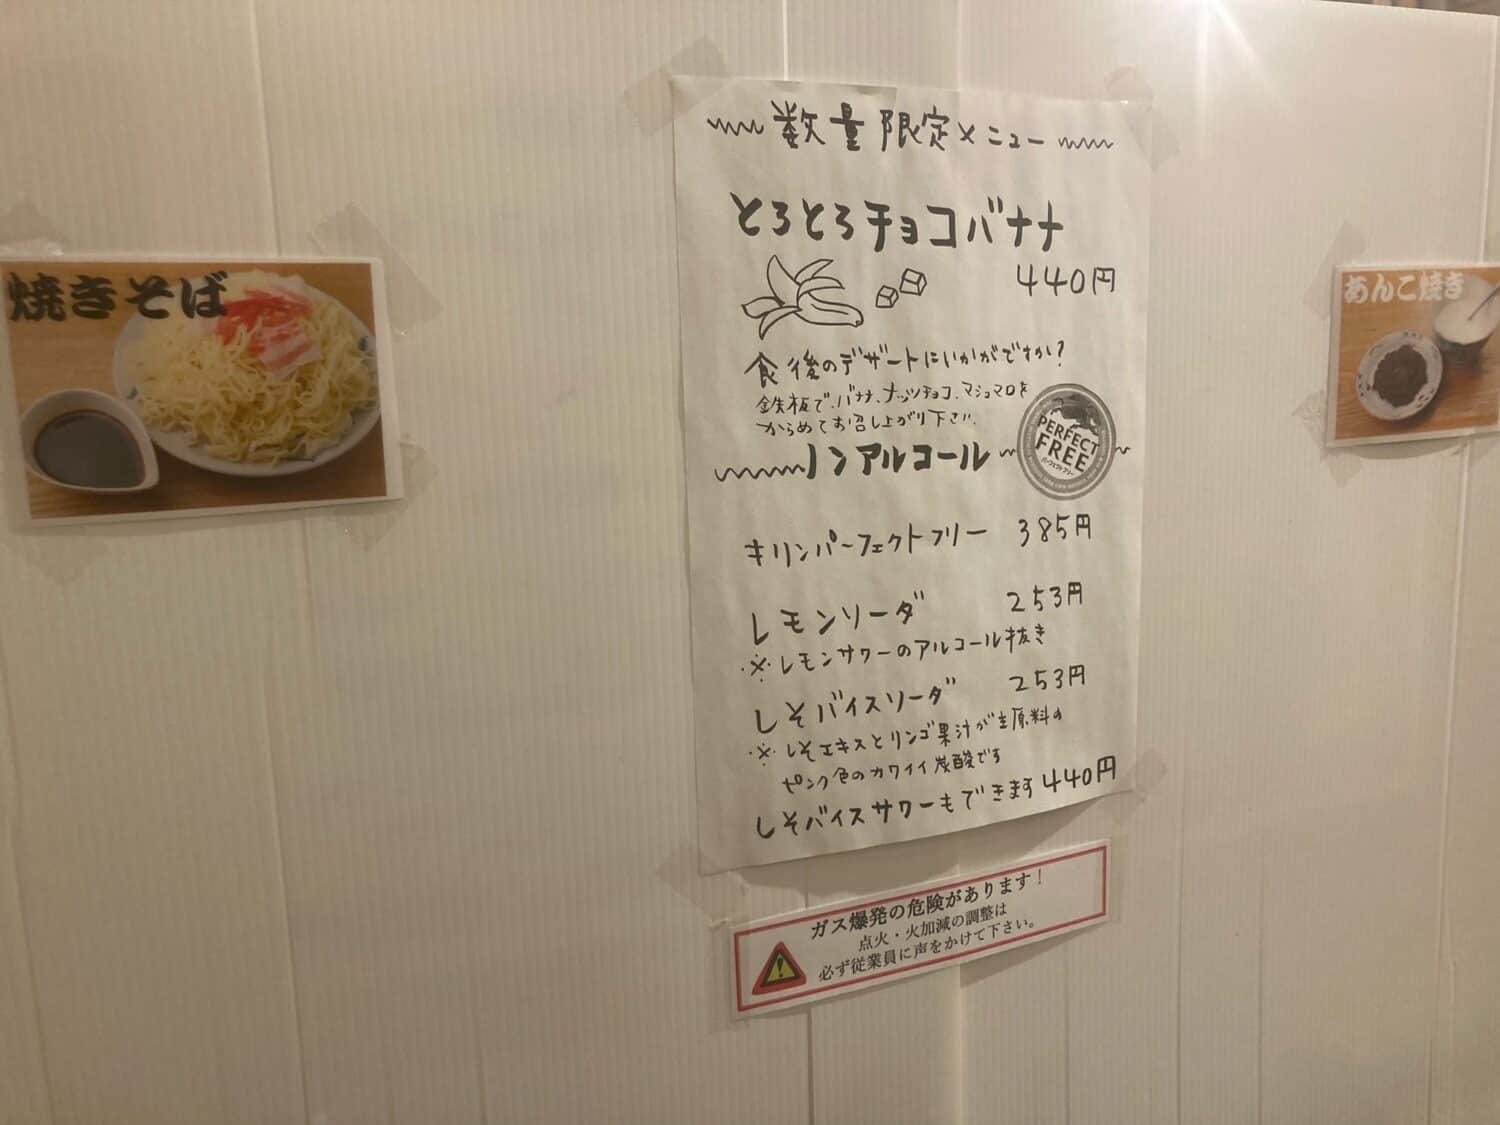 数量限定メニュー
とろとろチョコバナナ
440円
食後のデザートにいかがですか?
鉄板で、バナナ、ナッツチョコ、マシュマロを
からめてお召し上がり下さい。
ノンアルコール
PERFECT
FREE
パーフェクトフリー
キリンパーフェクトフリー 385円
レモンソーダ 253円
※レモンサワーのアルコール抜き
しそバイスソーダ 253円
※しそエキスとリンゴ果汁が主原料の
ピンク色のカワイイ炭酸です
しそバイスサワーもできます 440円
ガス爆発の危険があります!
点火・火加減の調整は
必ず従業員に声をかけて下さい。
焼きそば
あんこ焼き